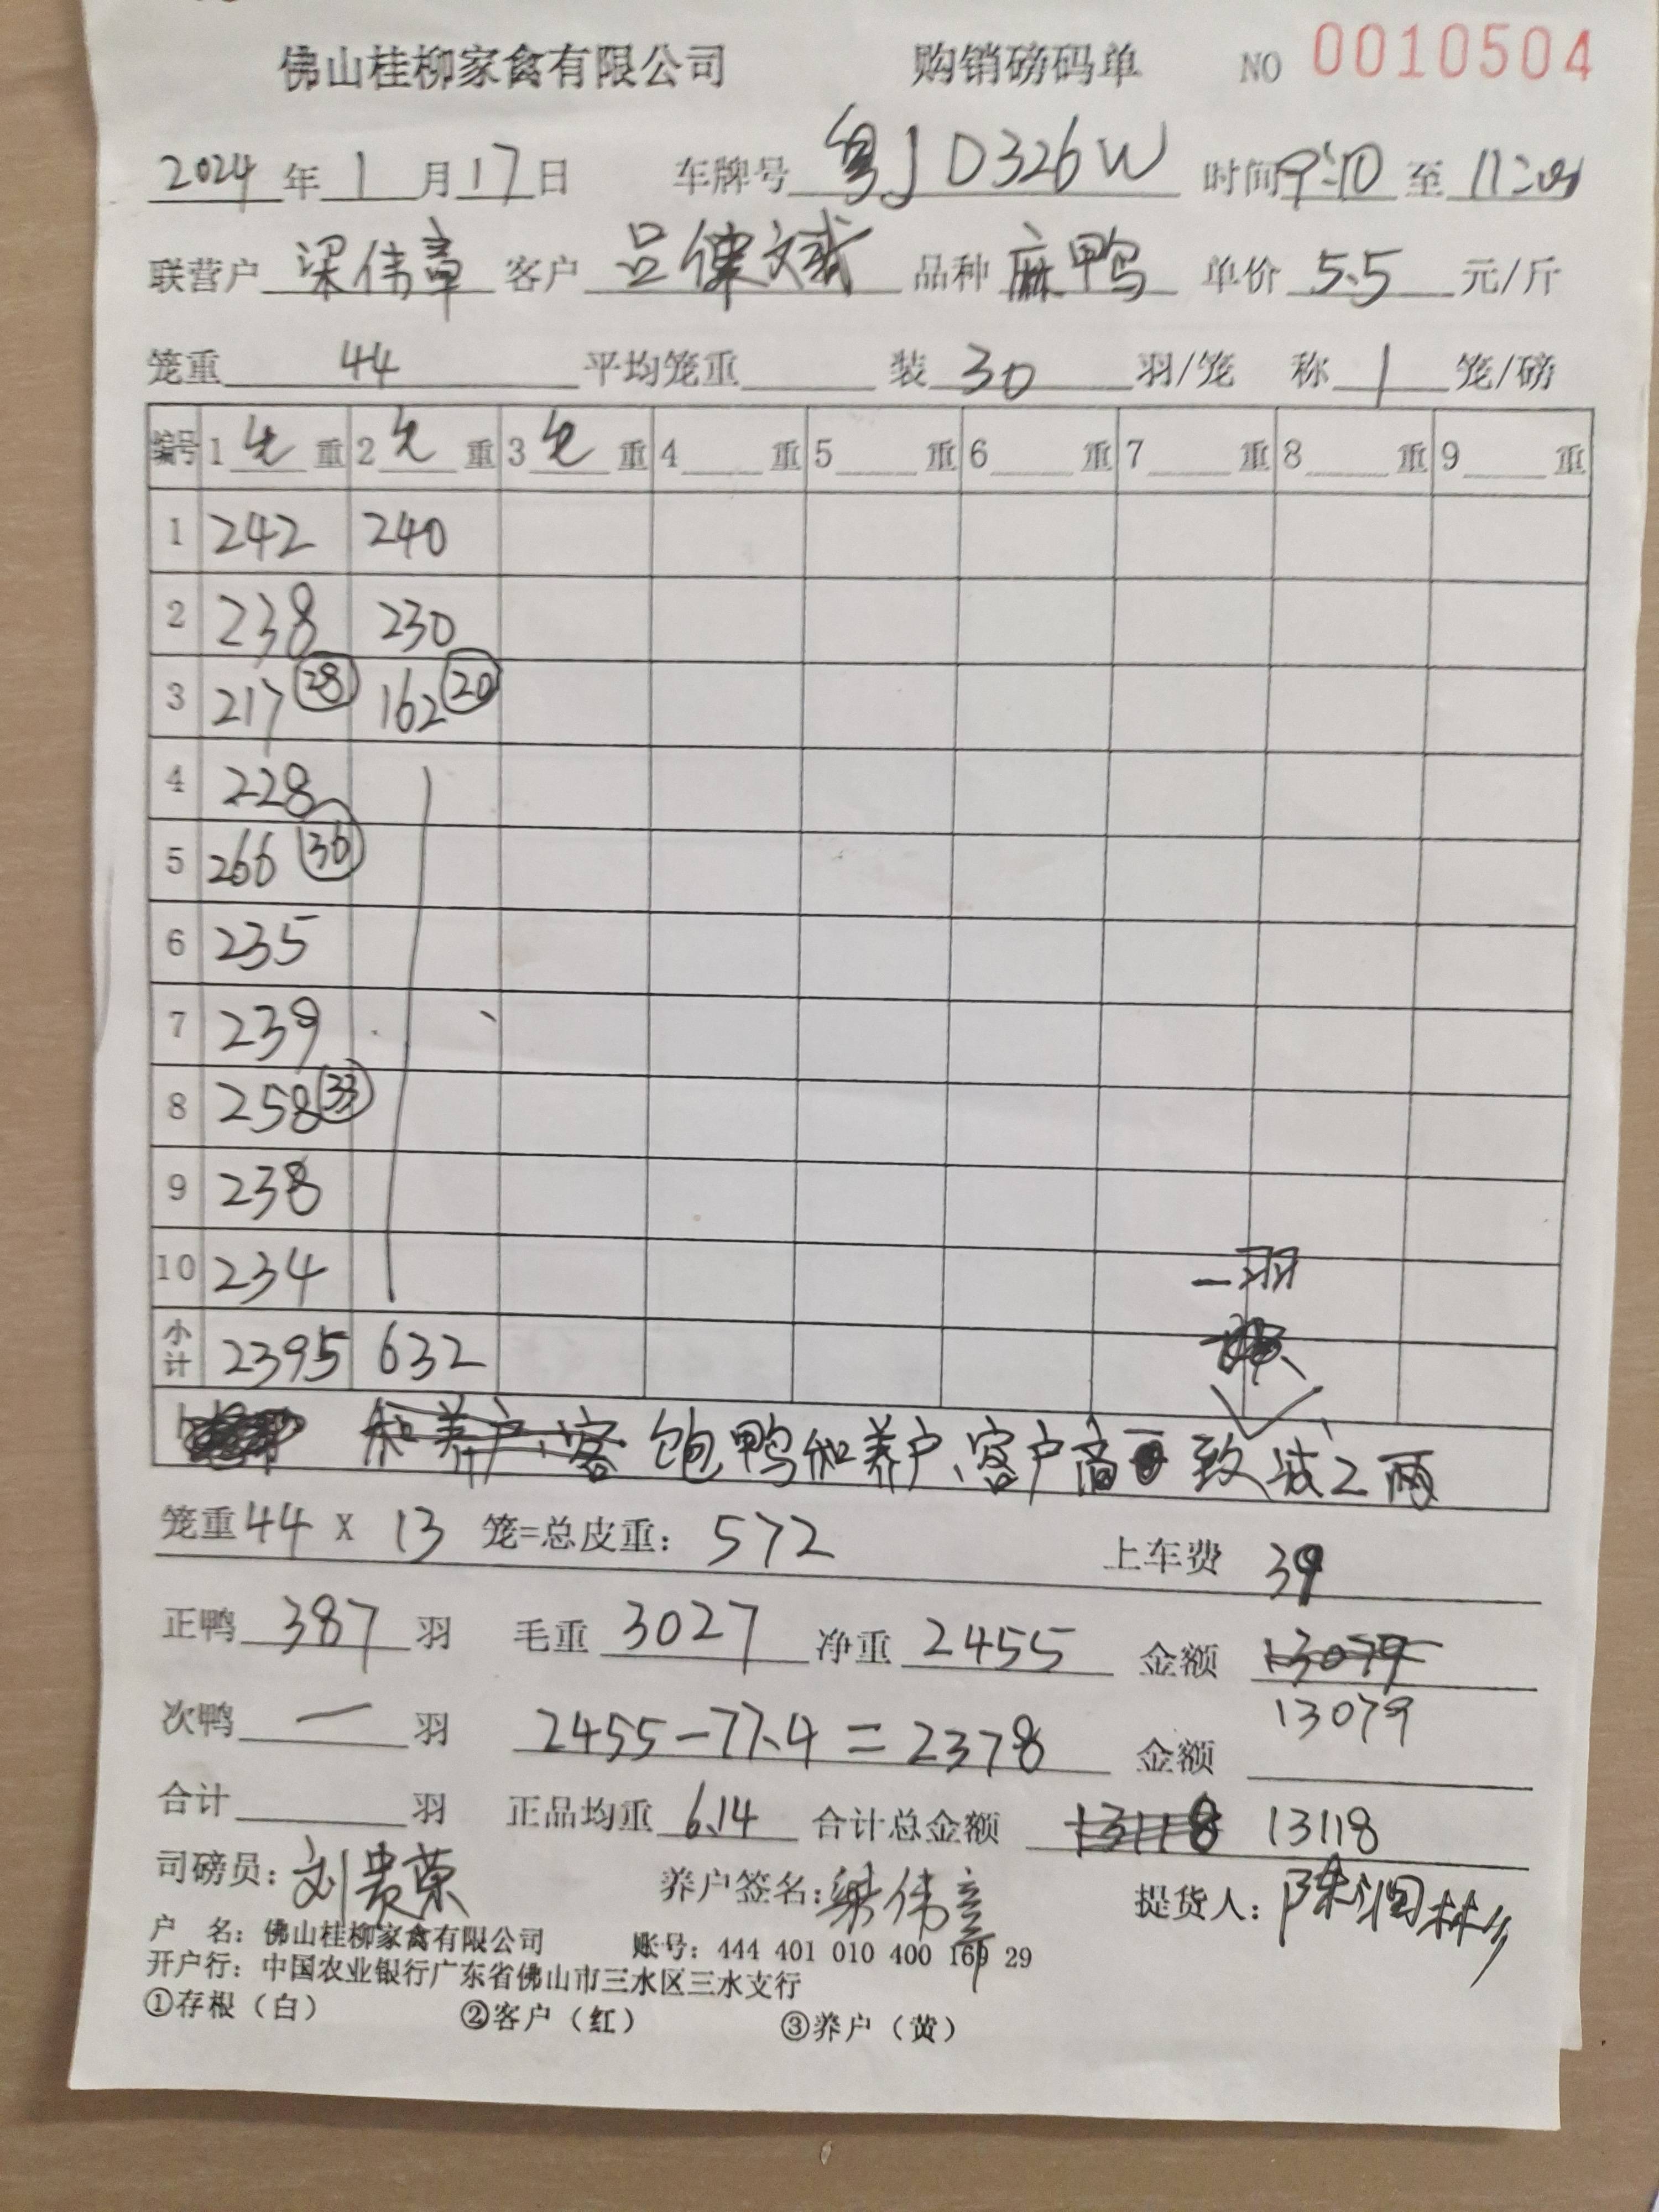 佛山桂柳家禽有限公司 购销磅码单 NO 0010504
2024年1月17日 车牌号 粤JD326W 时间 9:10 至 11:
联营户 梁伟章 客户 吕伟斌 品种 麻鸭 单价 5.5 元/斤
笼重 44 平均笼重 装 30 羽/笼 称 1 笼/磅
编号 1 重 2 重 3 重 4 重 5 重 6 重 7 重 8 重 9 重
1 242 240
2 238 230
3 217 28 162 20
4 228
5 266 36
6 235
7 239
8 258 33
9 238
10 234 一羽
小计 2395 632
和养户、客 饱鸭和养户、客户商 致 减2两
笼重44 X 13 笼=总皮重: 572 上车费 39
正鸭 387 羽 毛重 3027 净重 2455 金额 13079
次鸭 一 羽 2455-77.4=2378 金额 13079
合计 羽 正品均重 6.14 合计总金额 13118 13118
司磅员: 刘贵荣 养户签名: 梁伟章 提货人: 陈润林
户 名: 佛山桂柳家禽有限公司 账号: 444 401 010 400 169 29
开户行: 中国农业银行广东省佛山市三水区三水支行
①存根（白） ②客户（红） ③养户（黄）